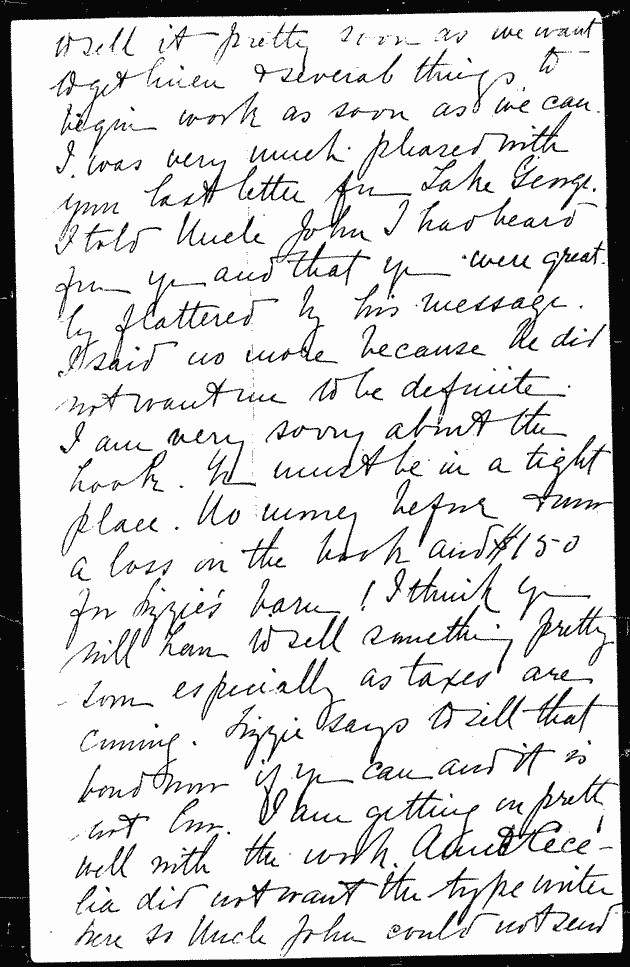 to sell it pretty soon as we want
to get linen & several things to
begin work as soon as we can.
I was very much pleased with
your last letter from Lake George.
I told Uncle John I had heard
from you and that you were great-
ly flattered by his message.
I said no more because he did
not want me to be definite.
I am very sorry about the
book. You must be in a tight
place. No money before & now
a loss on the book and $150
for Lizzie's barn! I think you
will have to sell something pretty
soon especially as taxes are
coming. Lizzie says to sell that
bond now if you can and it is
not low. I am getting on pretty
well with the work. Aunt Cece-
lia did not want the typewriter
here so Uncle John could not send